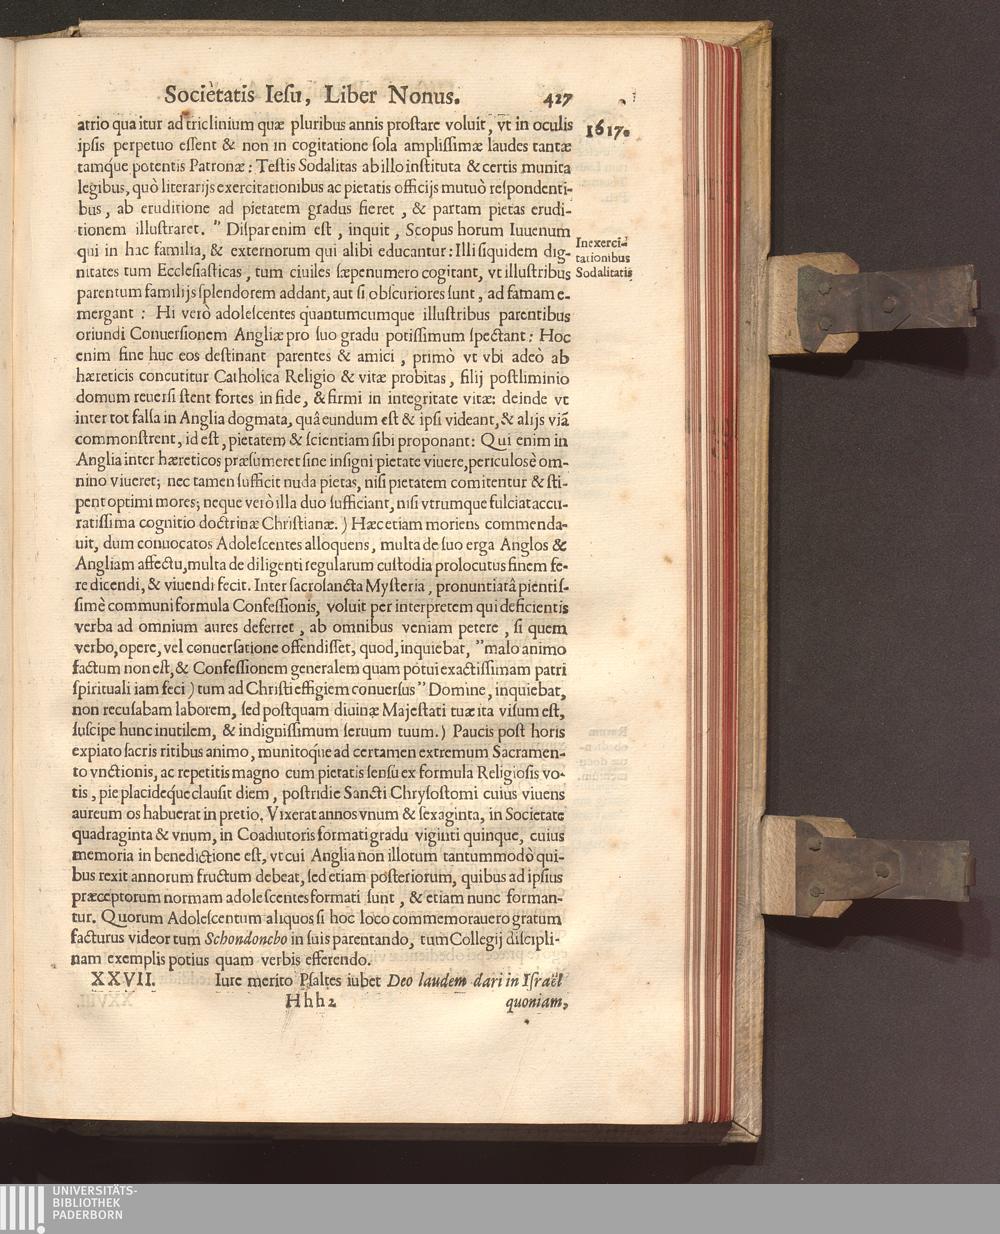 Societatis Iesu, Liber Nonus. 427
1617.
atrio qua itur ad triclinium quæ pluribus annis prostare voluit, vt in oculis
ipsis perpetuo essent & non in cogitatione sola amplissimæ laudes tantæ
tamque potentis Patronæ: Testis Sodalitas ab illo instituta & certis munita
legibus, quò literarijs exercitationibus ac pietatis officijs mutuò respondenti-
bus, ab eruditione ad pietatem gradus fieret, & partam pietas erudi-
tionem illustraret. " Dispar enim est, inquit, Scopus horum Iuuenum
In exerci-
tationibus
Sodalitatis
qui in hac familia, & externorum qui alibi educantur: Illi siquidem dig-
nitates tum Ecclesiasticas, tum ciuiles sæpenumero cogitant, vt illustribus
parentum familijs splendorem addant, aut si obscuriores sunt, ad famam e-
mergant: Hi verò adolescentes quantumcumque illustribus parentibus
oriundi Conuersionem Angliæ pro suo gradu potissimum spectant: Hoc
enim fine huc eos destinant parentes & amici, primò vt vbi adeò ab
hæreticis concutitur Catholica Religio & vitæ probitas, filij postliminio
domum reuersi stent fortes in fide, & firmi in integritate vitæ: deinde vt
inter tot falsa in Anglia dogmata, quâ eundum est & ipsi videant, & alijs viã
commonstrent, id est, pietatem & scientiam sibi proponant: Qui enim in
Anglia inter hæreticos præsumeret sine insigni pietate viuere, periculosè om-
nino viueret; nec tamen sufficit nuda pietas, nisi pietatem comitentur & sti-
pent optimi mores; neque verò illa duo sufficiant, nisi vtrumque fulciat accu-
ratissima cognitio doctrinæ Christianæ.) Hæc etiam moriens commenda-
uit, dum conuocatos Adolescentes alloquens, multa de suo erga Anglos &
Angliam affectu, multa de diligenti regularum custodia prolocutus finem fe-
re dicendi, & viuendi fecit. Inter sacrosancta Mysteria, pronuntiatâ pientis-
simè communi formula Confessionis, voluit per interpretem qui deficientis
verba ad omnium aures deferret, ab omnibus veniam petere, si quem
verbo, opere, vel conuersatione offendisset, quod, inquiebat, " malo animo
factum non est, & Confessionem generalem quam potui exactissimam patri
spirituali iam feci) tum ad Christi effigiem conuersus " Domine, inquiebat,
non recusabam laborem, sed postquam diuinæ Majestati tuæ ita visum est,
suscipe hunc inutilem, & indignissimum seruum tuum.) Paucis post horis
expiato sacris ritibus animo, munitoque ad certamen extremum Sacramen-
to vnctionis, ac repetitis magno cum pietatis sensu ex formula Religiosis vo-
tis, pie placideque clausit diem, postridie Sancti Chrysostomi cuius viuens
aureum os habuerat in pretio. Vixerat annos vnum & sexaginta, in Societate
quadraginta & vnum, in Coadiutoris formati gradu viginti quinque, cuius
memoria in benedictione est, vt cui Anglia non illotum tantummodò qui-
bus rexit annorum fructum debeat, sed etiam posteriorum, quibus ad ipsius
præceptorum normam adolescentes formati sunt, & etiam nunc forman-
tur. Quorum Adolescentum aliquos si hoc loco commemorauero gratum
facturus videor tum Schondoncho in suis parentando, tum Collegij discipli-
nam exemplis potius quam verbis efferendo.
XXVII. Iure merito Psaltes iubet Deo laudem dari in Israël
Hhh2 quoniam,
UNIVERSITÄTS-
BIBLIOTHEK
PADERBORN